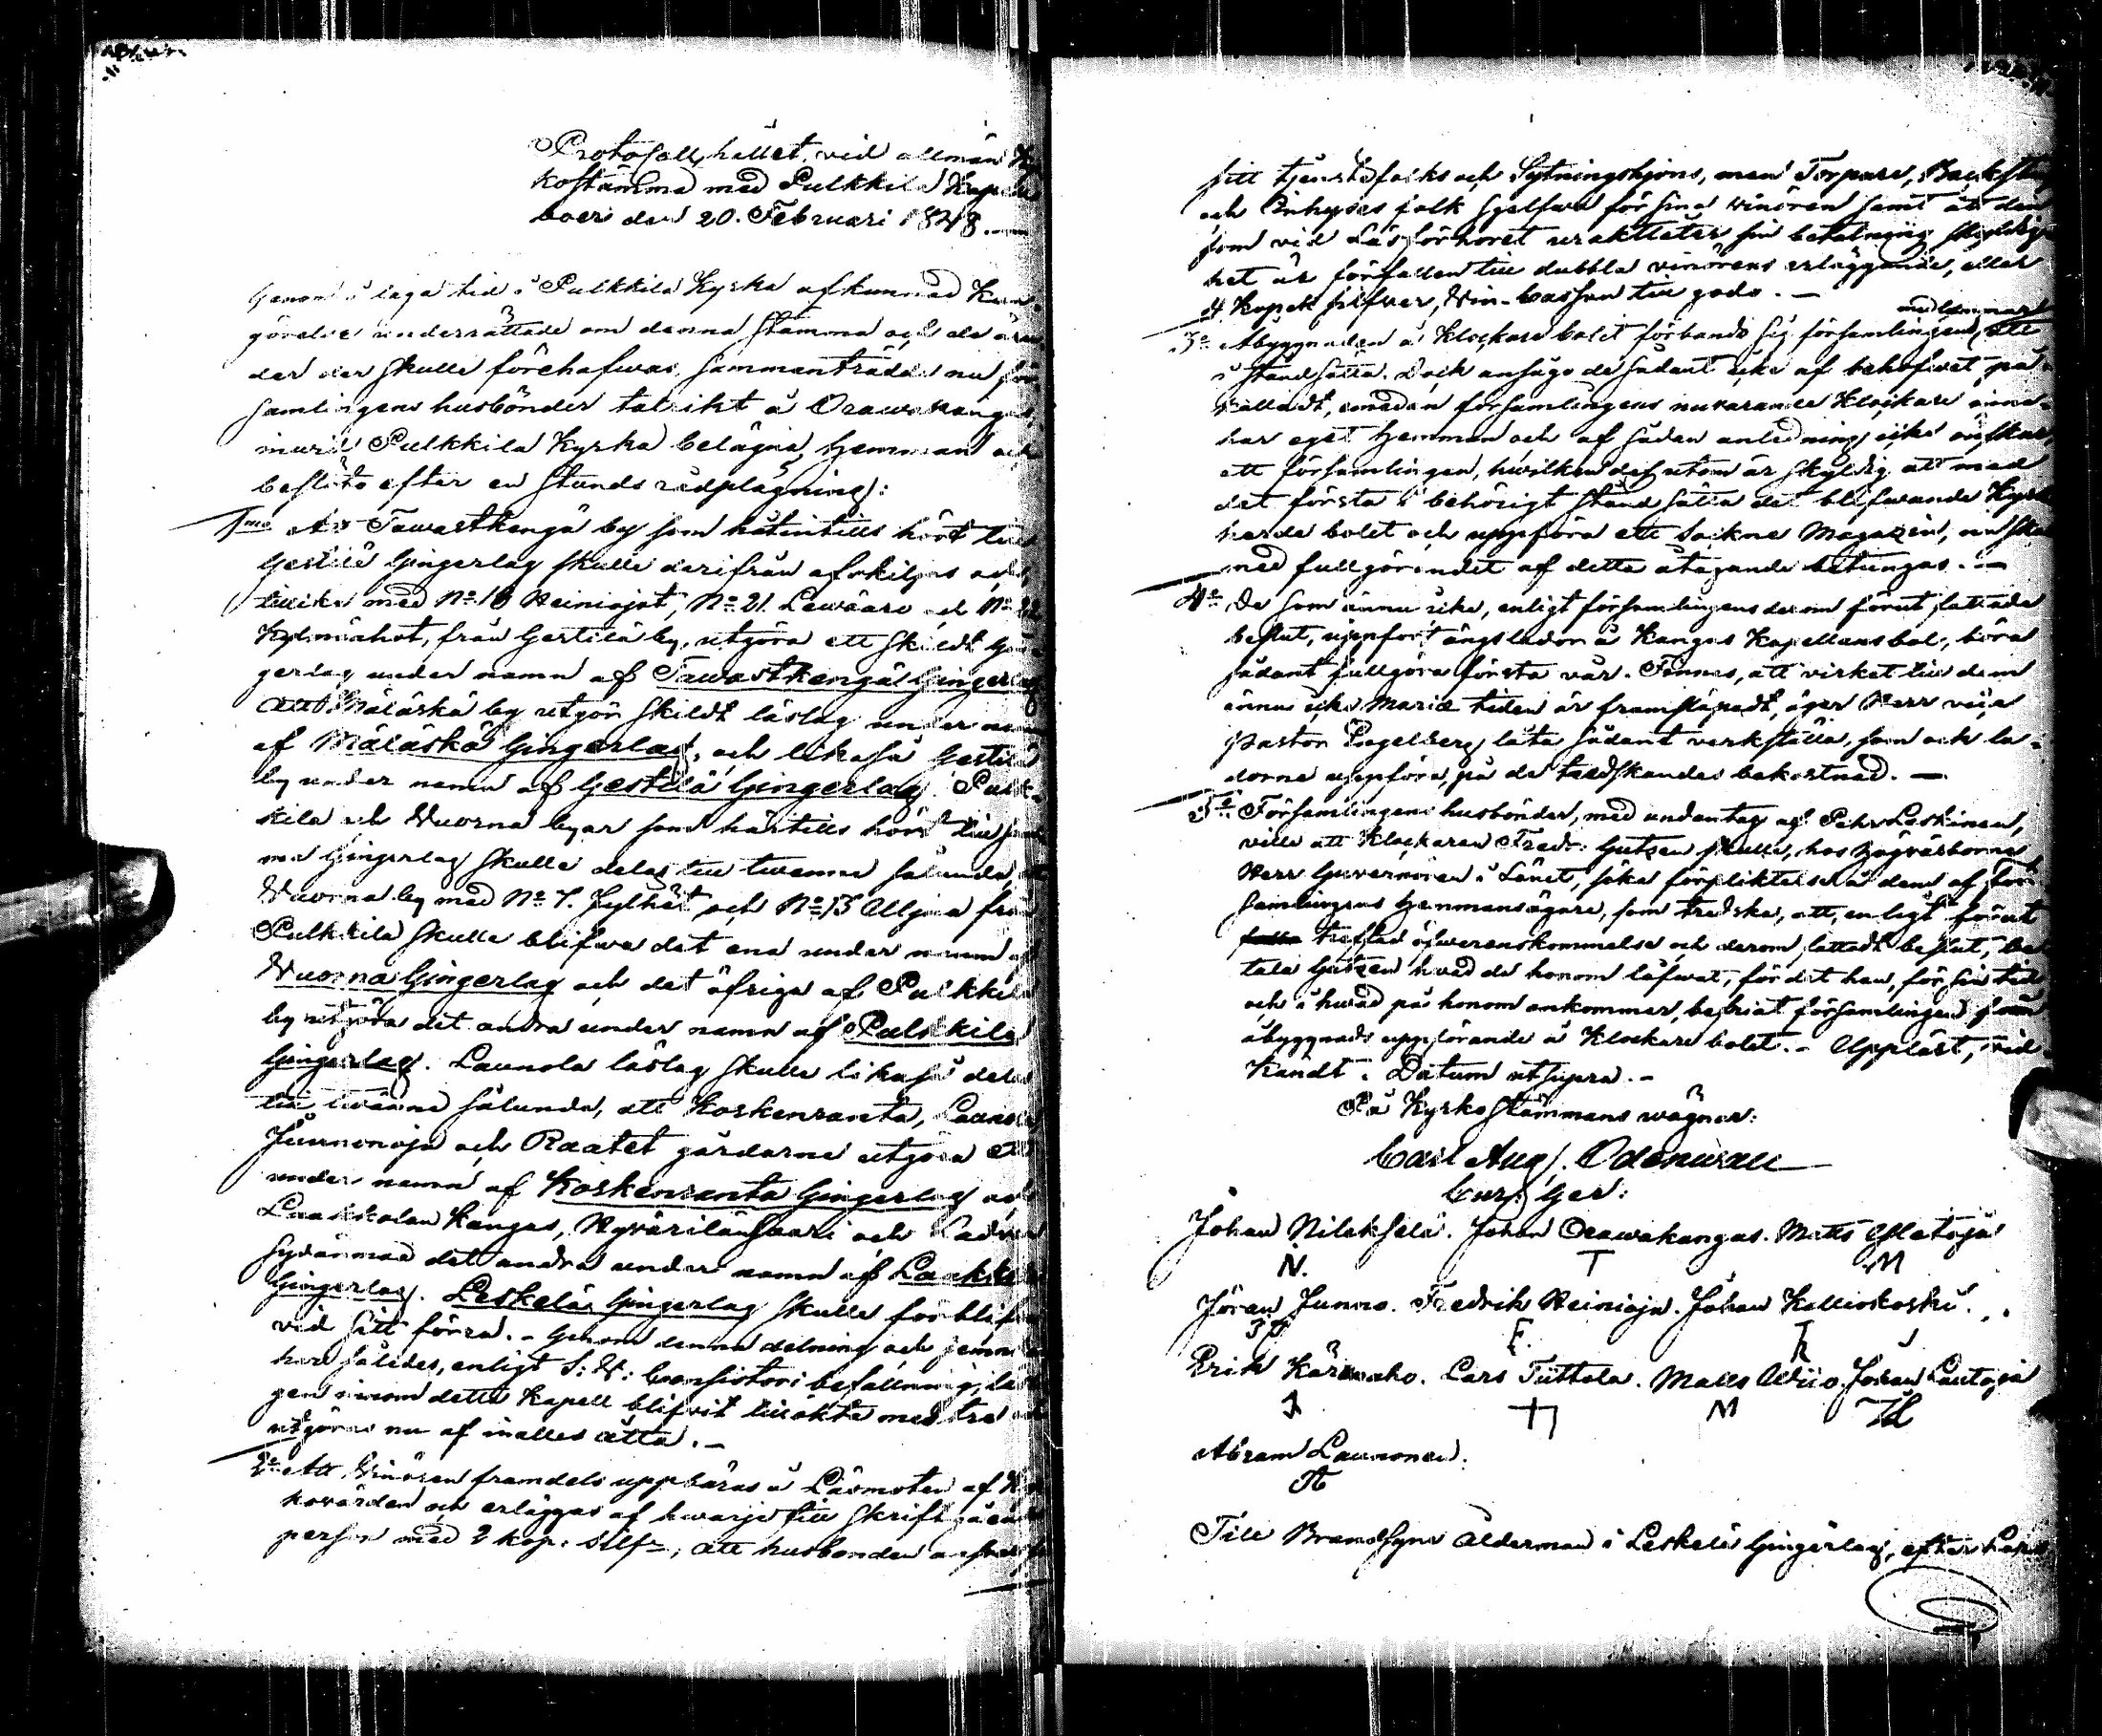 Protokoll, hållet vid allmän Kyr
kostämma med Pulkkila Kapell
boer den 20. Februari 1848.
Genom i laga tid i Pulkkila Kyrka afkunnad Kun
görelse underrättade om denna stämma och de ären
der der skulle förehafwas, sammanträdde nu för
samlingens husbönder talrikt å Orawakangas,
invid Pulkkila Kyrka belägna, hemman och
beslöto efter en stunds rådplägning:
1mo Att Tawastkengä by som hittintills hört till
Gestilä Gingerlag skulle derifrån afskiljas och
tillika med No 16 Heiniojat, No 21. Lewäaro och No
Kylmähot, från Gestilä by, utgöra ett skildt Gin
gerlag under namn af Tawastkengä Gingerlag
Att Mäläskä by utgör skildt läslag under namn
af Mäläskä Gingerlag, och likaså Gestilä
by under namn af Gestilä Gingerlag. Pulk
kila och Wuorna byar som härtills hört till sam
ma Gingerlag skulle delas till twenne sålunda, att
Wuorna by med No 7. Jylhät och No 13 Alljna från
Pulkkila skulle blifwa det ena under namn af
Wuorna Gingerlag och det öfriga af Pulkkila
by utgöra det andra under namn af Pulkkila
Gingerlag. Launola läslag skulle likaså delas
till twänne sålunda, att Koskenranta,
Junnonoja och Raatet gårdarne utgöra ett
under namn af Koskenranta Gingerlag och
Laakkolan Kangas, Hyvärilänsaari och
Sydänmaa det andra under namn af Laakkola
Gingerlag. Leskelä Gingerlag skulle förblifwa
vid sitt förra. - Genom denna delning och jemn
hare således, enligt S: W: Consistorii befallning, läs
gen inom detta Kapell blifvit tillökta med tre och
utgöras nu af inalles åtta. -
2o Att Winören framdeles uppbäras å Läsmöten af Kyr
kovärden och erläggas af hwarje till Skrift gående
person med 2 kop. silfr, att husbonden answarar för
sitt tjenstefolks och Sytningshjons, men Torpare, Backstug
och Inhyses folk sjelfwa för sina winören samt att den
som vid Läsförhöret uraktlåter sin betalning skyldig
het är förfallen till dubbla vinörens erläggande, eller
4 Kopek silfver, Win-Cassan till godo. -
medlemmar
3o Åbyggnaden å Klockare bolet förbundo sig församlingens att
i stånd sätta. Dock ansågo de sådant icke af behofwet på
kalladt, emedan församlingens nuvarande Klockare inne-
har eget hemman och af sådan anledning icke önskar,
att församlingen, hwilken dessutom är skyldig att med
det första i behörigt stånd sätta det blifwande Kyrko
herde bolet och uppföra ett Sockne Magazin, nu ska
med fullgörandet af detta åtagande betungas. -
4o De som ännu icke, enligt församlingens derom förut fattade
beslut, uppfört ängslador å Kangas Kapellansbol, böra
sådant fullgöra första vår. Finnes, att virket till dem
ännu icke Mariæ tiden är framsläpadt, äger Herr vice
pastor Pagelberg låta sådant verkställa, som och la-
dorne uppföra, på de tredskandes bekostnad. -
5o Församlingens husbönder, med undantag af Pehr Leskinen,
ville att Klockaren Fredr: Gutzen skulle, hos högvälborne
Herr Guvernören i Länet, söka förpliktelse å dem af för-
samlingens hemmansägare, som tredska, att, enligt förut
träffad öfwerenskommelse och derom fattadt beslut, be-
tala Gutzen hvad de honom låfwat, för det han, för sin tid
och i hwad på honom ankommer, befriat församlingen från
åbyggnads uppförande å Klockare bolet. - Uppläst, ved-
kändt. Datum utsupra. -
På Kyrkostämmans wägnar:
Carl Aug. Odenwall
Curs: Ger:
Johan Nileksela. Johan Orawakangas. Matts Yletoja
N. T M
Jöran Junno. Fredrik Heinioja. Johan Kalliokoski.
F.
Erik Käremaho. Lars Tuttola. Matts Wiio. Johan Lautoja
M
Abram Launonen.
Till Brandsyns Ålderman i Leskelä Gingerlag, efter